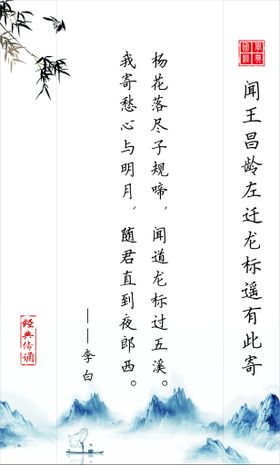 闻王昌龄左迁龙标遥有此寄
杨花落尽子规啼，闻道龙标过五溪。
我寄愁心与明月，随君直到夜郎西。
——李白
经典传诵